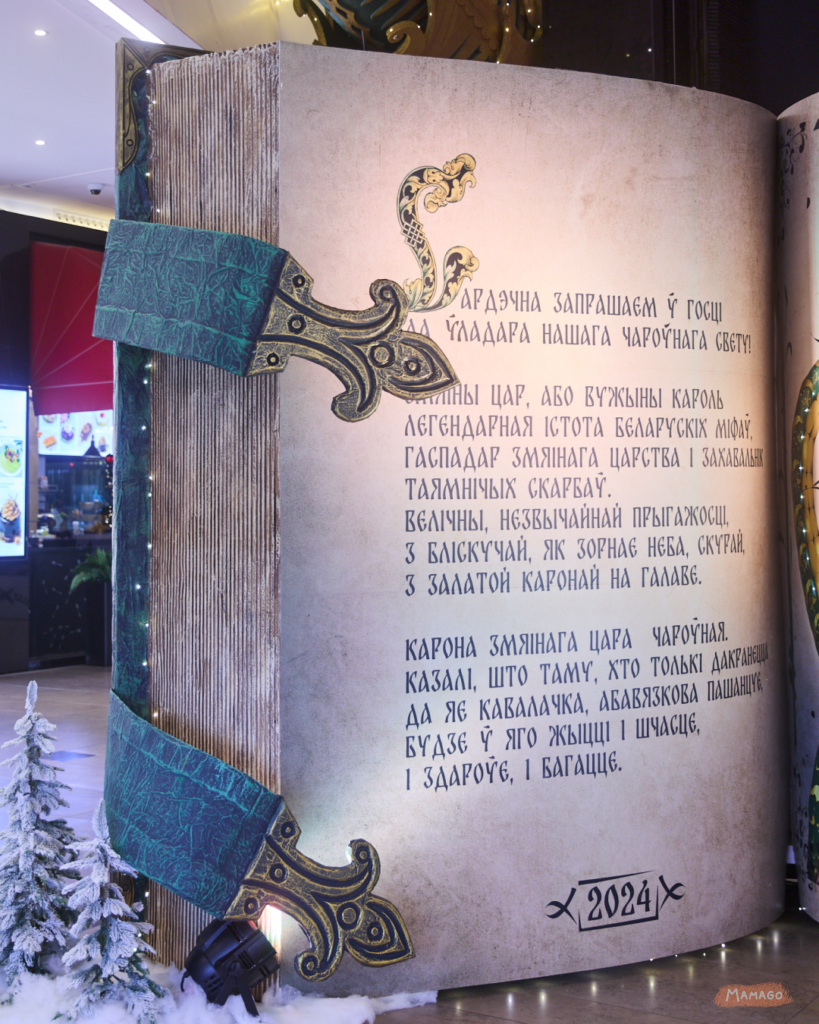 САРДЭЧНА ЗАПРАШАЕМ Ў ГОСЦІ
ДА ЎЛАДАРА НАШАГА ЧАРОЎНАГА СВЕТУ!
ЗМЯІНЫ ЦАР, АБО ВУЖЫНЫ КАРОЛЬ
ЛЕГЕНДАРНАЯ ІСТОТА БЕЛАРУСКІХ МІФАЎ,
ГАСПАДАР ЗМЯІНАГА ЦАРСТВА І ЗАХАВАЛЬНІК
ТАЯМНІЧЫХ СКАРБАЎ.
ВЕЛІЧНЫ, НЕЗВЫЧАЙНАЙ ПРЫГАЖОСЦІ,
З БЛІСКУЧАЙ, ЯК ЗОРНАЕ НЕБА, СКУРАЙ,
З ЗАЛАТОЙ КАРОНАЙ НА ГАЛАВЕ.
КАРОНА ЗМЯІНАГА ЦАРА ЧАРОЎНАЯ.
КАЗАЛІ, ШТО ТАМУ, ХТО ТОЛЬКІ ДАКРАНЕЦЦА
ДА ЯЕ КАВАЛАЧКА, АБАВЯЗКОВА ПАШАНЦУЕ,
БУДЗЕ Ў ЯГО ЖЫЦЦІ І ШЧАСЦЕ,
І ЗДАРОЎЕ, І БАГАЦЦЕ.
2024
MAMAGO